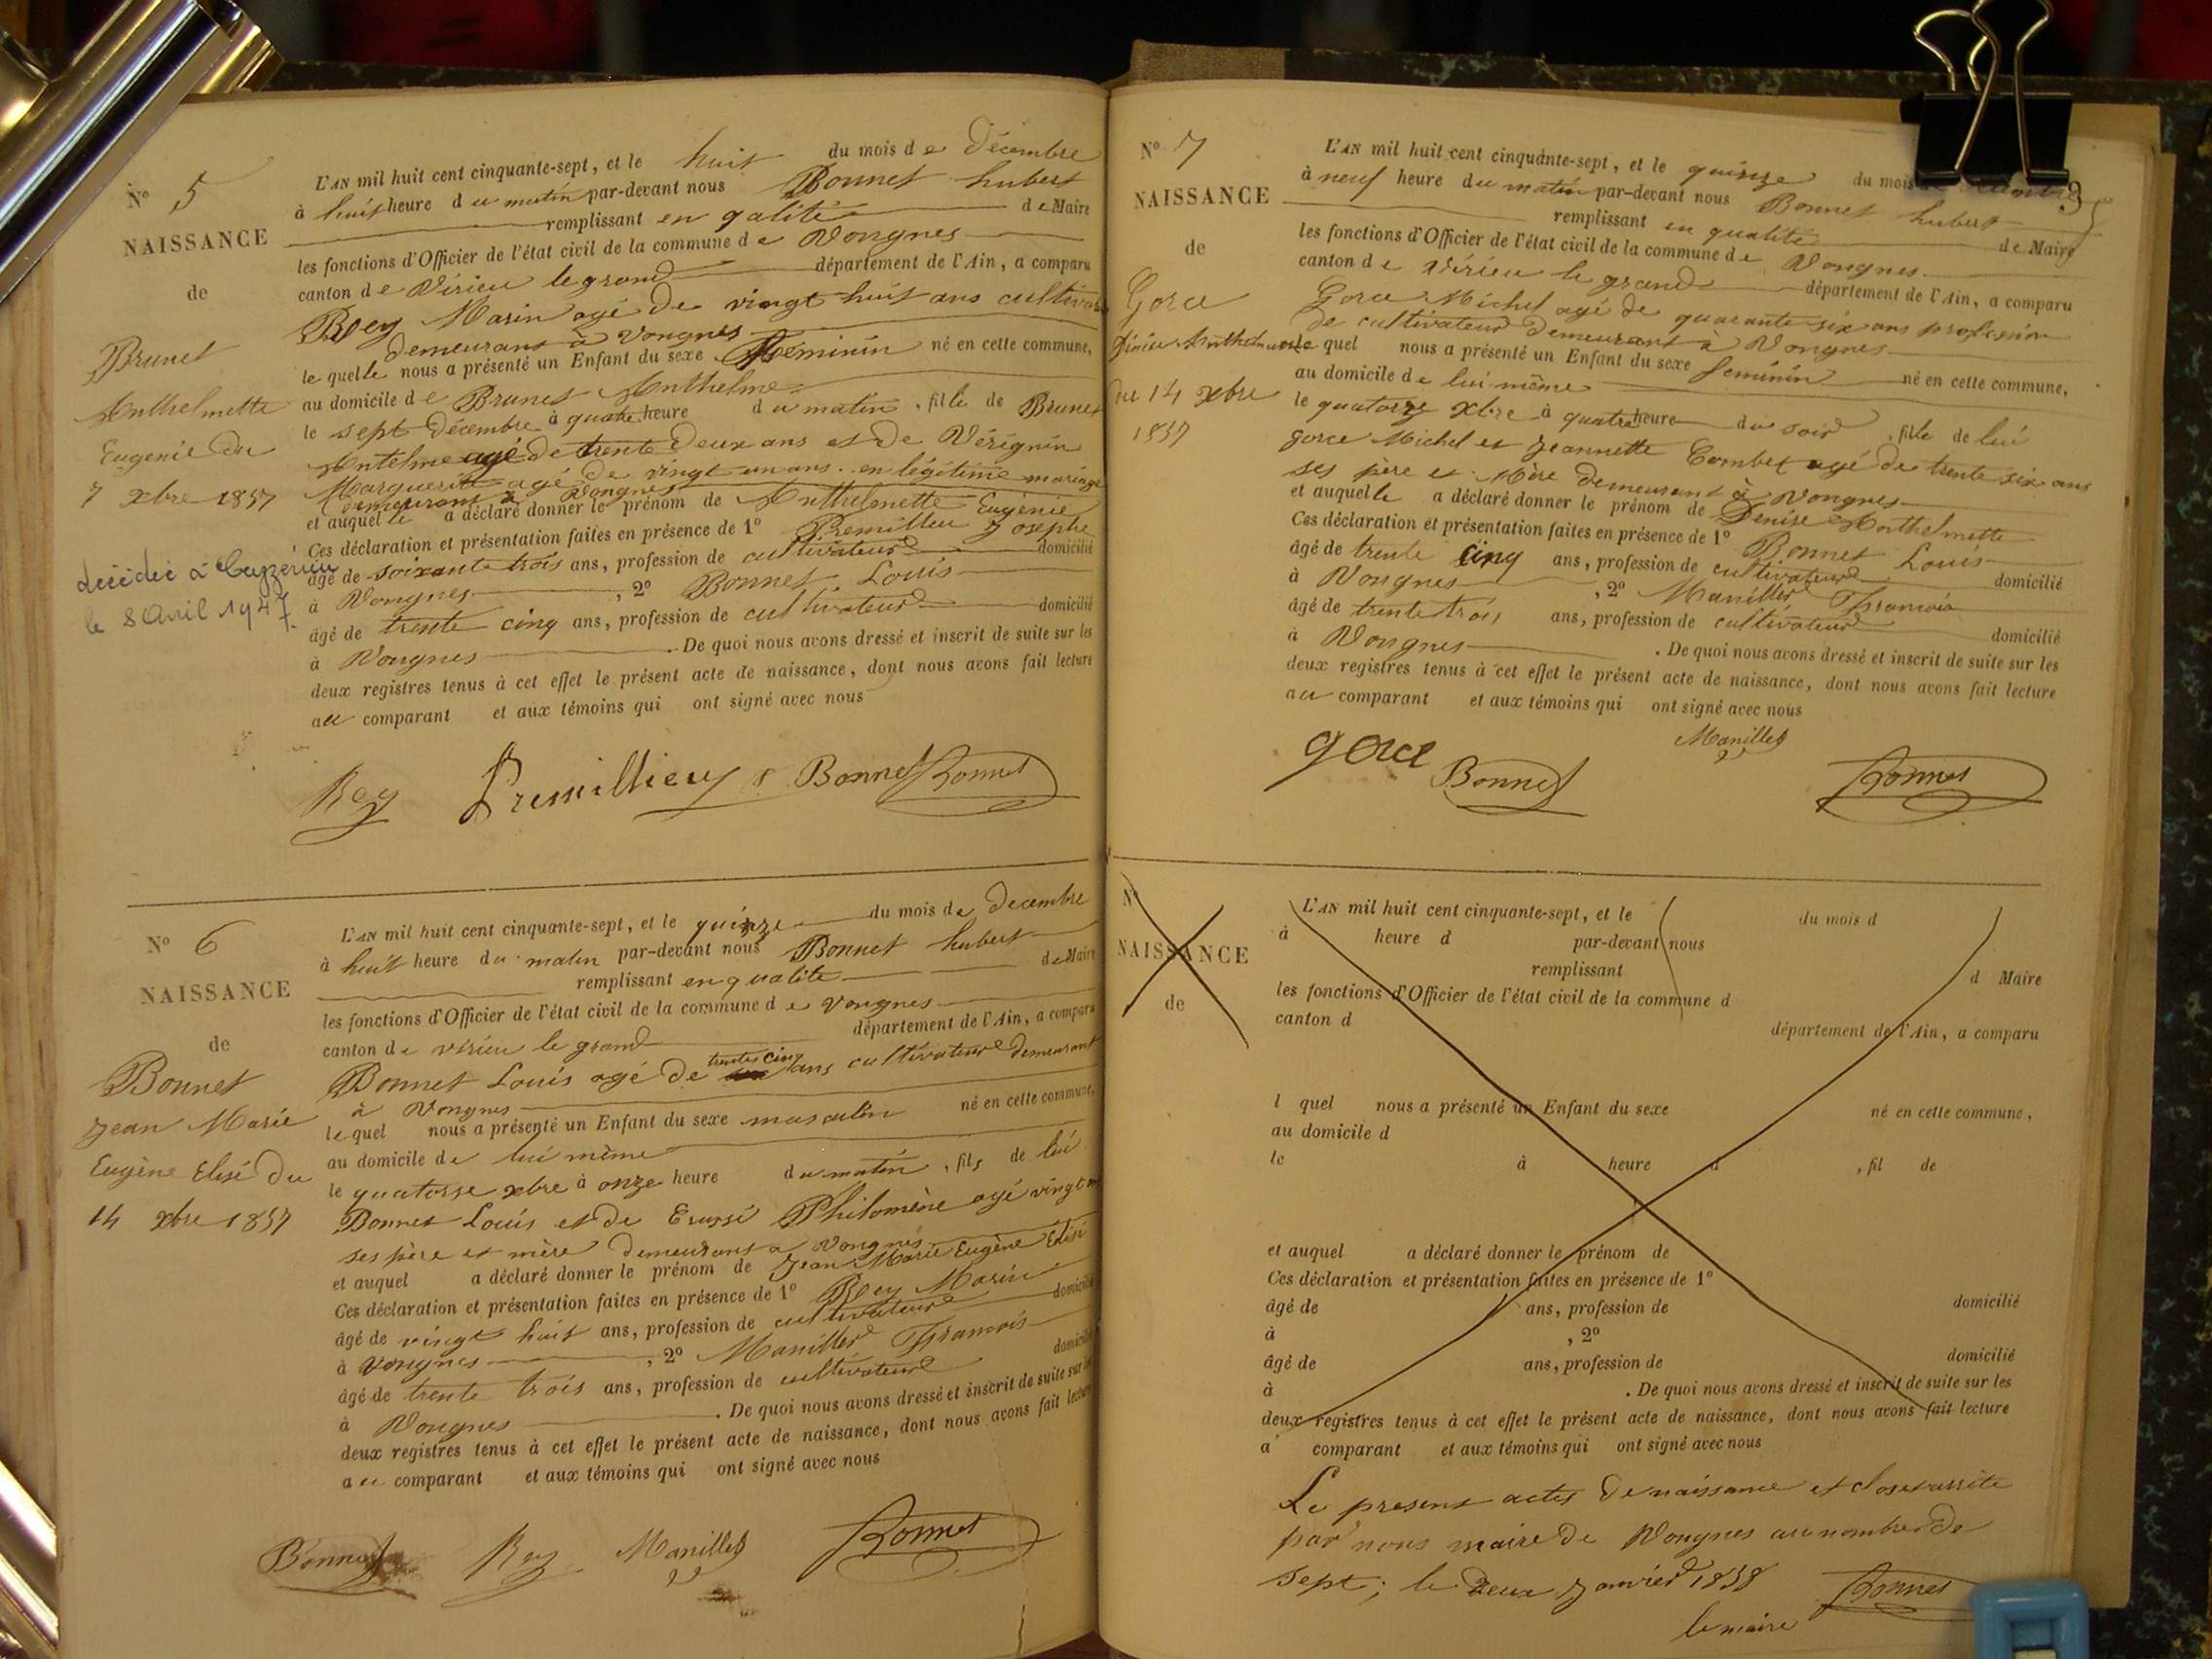 N° 5
NAISSANCE
de
Brunet
Anthelmette
Eugenie du
7 xbre 1857
décédée à Ceyzérieu
le 8 Avril 1947.
L'AN mil huit cent cinquante-sept, et le huit du mois de Décembre
à huit heure du matin par-devant nous Bonnet hubert
remplissant en qalité de Maire
les fonctions d'Officier de l'état civil de la commune de Vongnes
canton de Virieu le grand département de l'Ain, a comparu
Rey Marin agé de vingt huit ans cultivateur
demeurant à Vongnes
le quelle nous a présenté un Enfant du sexe féminin né en cette commune,
au domicile de Brunet Anthelme
le sept Décembre à quatre heure du matin, fille de Brunet
Antelme agé de trente deux ans et de
Marguerite agé de vingt un ans en légitime mariage
demeurant à Vongnes
et auquelle a déclaré donner le prénom de Anthelmette Eugénie
Ces déclaration et présentation faites en présence de 1° Premillieu Josephe
âgé de soixante trois ans, profession de cultivateur domicilié
à Vongnes, 2° Bonnet Louis
âgé de trente cinq ans, profession de cultivateur domicilié
à Vongnes. De quoi nous avons dressé et inscrit de suite sur les
deux registres tenus à cet effet le présent acte de naissance, dont nous avons fait lecture
au comparant et aux témoins qui ont signé avec nous
Rey Premillieux Bonnet Bonnet
N° 6
NAISSANCE
de
Bonnet
Jean Marie
Eugène Elisé du
14 xbre 1857
L'AN mil huit cent cinquante-sept, et le quinze du mois de Decembre
à huit heure du matin par-devant nous Bonnet hubert
remplissant en qualite de Maire
les fonctions d'Officier de l'état civil de la commune de Vongnes
canton de Virieu le grand département de l'Ain, a comparu
Bonnet Louis agé de trente cinq ans cultivateur demeurant
à Vongnes
le quel nous a présenté un Enfant du sexe masculin né en cette commune,
au domicile de lui même
le quatorse xbre à onze heure du matin, fils de lui
Bonnet Louis et de Philomène agé vingt
ses père et mère demeurant a Vongnes
et auquel a déclaré donner le prénom de Jean Marie Eugène Elisé
Ces déclaration et présentation faites en présence de 1° Rey Marin
âgé de vingt huit ans, profession de cultivateur domicilié
à Vongnes, 2° Manillet François
âgé de trente trois ans, profession de cultivateur domicilié
à Vongnes. De quoi nous avons dressé et inscrit de suite sur les
deux registres tenus à cet effet le présent acte de naissance, dont nous avons fait lecture
au comparant et aux témoins qui ont signé avec nous
Bonnet Rey Manillet Bonnet
N° 7
NAISSANCE
de
Gorce
Anthelmette
du 14 xbre
1857
3
L'AN mil huit cent cinquante-sept, et le quinze du mois de
à neuf heure du matin par-devant nous Bonnet hubert
remplissant en qualité de Maire
les fonctions d'Officier de l'état civil de la commune de Vongnes
canton de Virieu le grand département de l'Ain, a comparu
Gorce Michel agé de quarante six ans profession
de cultivateur demeurant a Vongnes
le quel nous a présenté un Enfant du sexe feminin né en cette commune,
au domicile de lui même
le quatorze xbre à quatre heure du soir, fille de lui
gorce Michel et Jeannette Combet agé de trente six ans
ses père et Mère demeurant à Vongnes
et auquelle a déclaré donner le prénom de Denise Anthelmette
Ces déclaration et présentation faites en présence de 1° Bonnet Louis
âgé de trente cinq ans, profession de cultivateur domicilié
à Vongnes, 2° Manillet François
âgé de trente trois ans, profession de cultivateur domicilié
à Vongnes. De quoi nous avons dressé et inscrit de suite sur les
deux registres tenus à cet effet le présent acte de naissance, dont nous avons fait lecture
au comparant et aux témoins qui ont signé avec nous
gorce Bonnet Manillet Bonnet
N°
NAISSANCE
de
L'AN mil huit cent cinquante-sept, et le du mois d
à heure d par-devant nous
remplissant d Maire
les fonctions d'Officier de l'état civil de la commune d
canton d département de l'Ain, a comparu
l quel nous a présenté un Enfant du sexe né en cette commune,
au domicile d
le à heure d, fil de
et auquel a déclaré donner le prénom de
Ces déclaration et présentation faites en présence de 1°
âgé de ans, profession de domicilié
à , 2°
âgé de ans, profession de domicilié
à . De quoi nous avons dressé et inscrit de suite sur les
deux registres tenus à cet effet le présent acte de naissance, dont nous avons fait lecture
a comparant et aux témoins qui ont signé avec nous
Le present actes de naissance et clos et arrite
par nous maire de Vongnes au nombre de
sept; le deux Janvier 1858 Bonnet
le maire